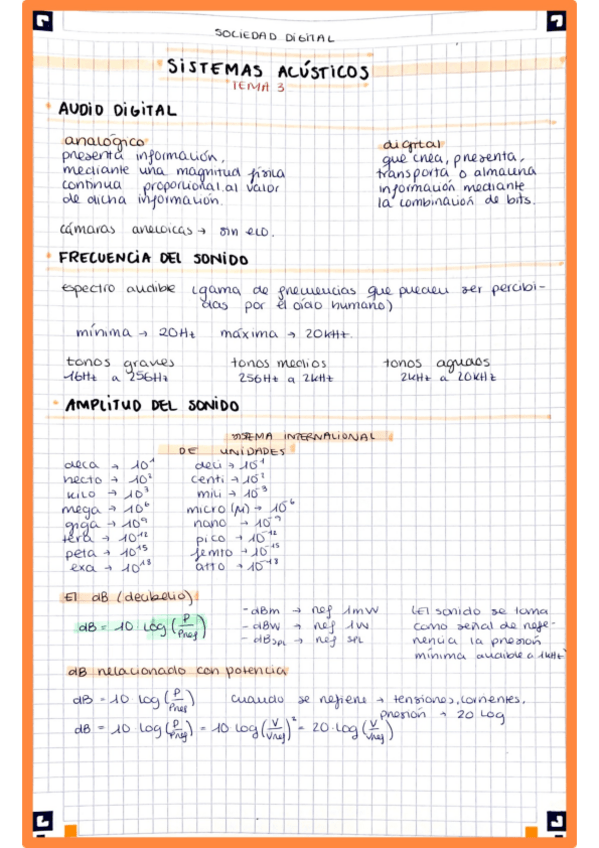 SOCIEDAD DIGITAL
SISTEMAS ACÚSTICOS
TEMA 3
AUDIO DIGITAL
analógico
presenta información,
mediante una magnitud física
continua proporcional al valor
de dicha información.
digital
que crea, presenta,
transporta o almacena
información mediante
la combinación de bits.
cámaras anecoicas → sin eco.
FRECUENCIA DEL SONIDO
espectro audible (gama de frecuencias que pueden ser percibi-
das por el oído humano)
mínima → 20Hz máxima → 20kHz.
tonos graves tonos medios tonos agudos
16Hz a 256Hz 256Hz a 2kHz 2kHz a 20kHz
AMPLITUD DEL SONIDO
SISTEMA INTERNACIONAL
DE UNIDADES
deca → 10¹ deci → 10⁻¹
hecto → 10² centi → 10⁻²
kilo → 10³ mili → 10⁻³
mega → 10⁶ micro (μ) → 10⁻⁶
giga → 10⁹ nano → 10⁻⁹
tera → 10¹² pico → 10⁻¹²
peta → 10¹⁵ femto → 10⁻¹⁵
exa → 10¹⁸ atto → 10⁻¹⁸
El dB (decibelio)
dB = 10 log (P/Pref)
- dBm → ref 1mW
- dBW → ref 1W
- dBSPL → ref SPL
(El sonido se toma
como señal de refe-
rencia la presión
mínima audible a 1kHz)
dB relacionado con potencia
dB = 10 log (P/Pref) cuando se refiere → tensiones, corrientes,
presión → 20 log
dB = 10 log (P/Pref) = 10 log (V/Vref)² = 20 log (V/Vref)